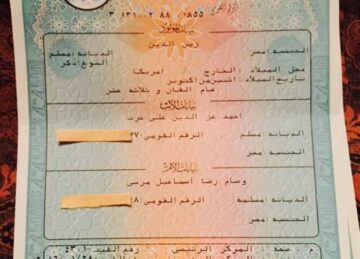 ٣ ١٣١٠٠٢ ٨٨ ٠١٨٥٥
زين الدين
الجنسية :مصر
الديانة :مسلم
النوع :ذكر
محل الميلاد : الخارج امريكا
تاريخ الميلاد : اثنين من اكتوبر
عام الفان و ثلاثه عشر
بيانات الأب
احمد عز الدين على عزت
الديانة :مسلم الرقم القومى :٢٧
الجنسية :مصر
بيانات الأم
وسام رضا اسماعيل مرسى
الديانة :مسلمة الرقم القومى :٢٨
الجنسية :مصر
م . صحة المركز الرئيسى رقم القيد :٤٣٠١